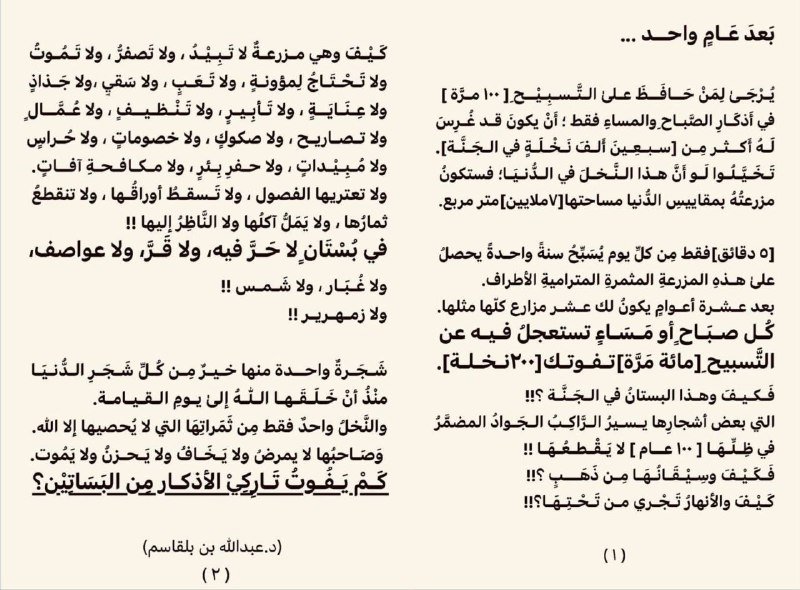 بَعدَ عَـامٍ واحــد ...
يُـرْجَـىٰ لِمَنْ حَـافَــظَ علىٰ التَّـسبِيْـحِ [ ١٠٠ مرَّة ]
في أذكَـارِ الصَّباحِ والمساءِ فقط ؛ أنْ يكونَ قـد غُـرِسَ
لَـهُ أكـثـر مِـن [سـبـعِـينَ ألـفَ نَـخْـلَـةٍ في الجَـنَّـة].
تَـخَيَّـلُوا لَـو أنَّ هـذا الـنَّـخـلَ في الدُّنـيَـا؛ فستكونُ
مزرعتُهُ بمقاييسِ الدُّنيا مساحتها[٧ملايين]متر مربع.
[٥ دقائق]فقط مِن كلِّ يوم يُسَبِّحُ سنةً واحـدةً يحصلُ
علىٰ هـذهِ المزرعةِ المثمرةِ المتراميةِ الأطراف.
بعد عـشـرة أعـوامٍ يكونُ لك عـشـر مزارع كلّها مثلها.
كُـل صبَـاحٍ أو مَـسَـاءٍ تستعجلُ فـيـه عن
التَّسبيحِ [مائة مَرَّة]تـفـوتـك[٢٠٠نـخـلـة].
فَـكيـفَ وهـذا البستانُ في الجَـنَّـة ؟!!
التي بعض أشجارِها يـسـيرُ الـرَّاكِـبُ الـجَـوادُ المضمَّرُ
في ظِلِّـهَـا [ ١٠٠ عـام ] لا يَـقْـطـعُـهَـا !!
فَـكَـيْـفَ وسِـيْـقَـانُـهَـا مِـن ذَهَـــبٍ ؟!!
كَـيْـفَ والأنهارُ تَـجْـرِي مـن تَـحْـتِـهَـا؟!!
(١)
كَـيْـفَ وهي مـزرعـةٌ لا تَـبِـيْـدُ ، ولا تَصفرُّ ، ولا تَـمُـوتُ
ولا تَـحْـتَـاجُ لِمؤونـةٍ ، ولا تَـعَـبٍ ، ولا سَقيٍ ،ولا جَـذاذٍ
ولا عِـنَـايَـــةٍ ، ولا تَـأبـيـرٍ ، ولا تَـنْـظـيــفٍ ، ولا عُـمَّــالٍ
ولا تـصـاريــح ، ولا صكوكٍ ، ولا خصوماتٍ ، ولا حُـراسٍ
ولا مُـبِـيْـداتٍ ، ولا حـفـرِ بِـئـرٍ ، ولا مـكـافـحـةِ آفــاتٍ.
ولا تعتريها الفصول ، ولا تَـسقـطُ أوراقُـها ، ولا تنقطعُ
ثمارُها ، ولا يَمَلُّ آكلُها ولا النَّاظِرُ إليها !!
في بُسْتَانٍ لا حَـرَّ فيه، ولا قَـرَّ، ولا عواصف،
ولا غُـبَـار ، ولا شَـمـس !!
ولا زمـهـريـر !!
شَـجـرةٌ واحــدة منها خـيـرٌ مِـن كُـلِّ شَـجَـرِ الـدُّنـيَـا
منْذُ أنْ خَـلَـقَـهـا الـلّٰـهُ إلىٰ يـومِ الـقـيـامـة.
والنَّخلُ واحدٌ فقط مِن ثَمَراتِهَا التي لا يُحصيها إلا الله.
وَصَـاحبُها لا يمرضُ ولا يَـخَـافُ ولا يَـحـزنُ ولا يَمُوت.
كَـمْ يَـفُـوتُ تَـارِكِيْ الأذكـار مِن البَسَاتِيْن؟
(د.عبدالله بن بلقاسم)
(٢)